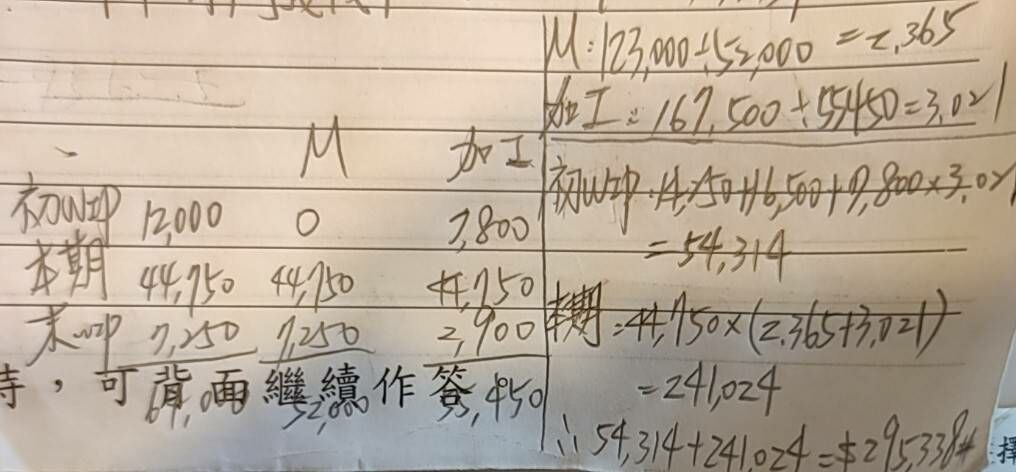 M 加工
初WIP 12,000 0 7,800
本期 44,750 44,750 44,750
末WIP 7,250 7,250 2,900
，可背面繼續作答
64,000 52,000 55,450
M:123,000÷52,000 =2.365
加工:167,500÷55450=3.021
初WIP:14,250+16,500+7,800×3.021
=54,314
本期:44,750×(2.365+3.021)
=241,024
∴54,314+241,024=$295,338#
擇